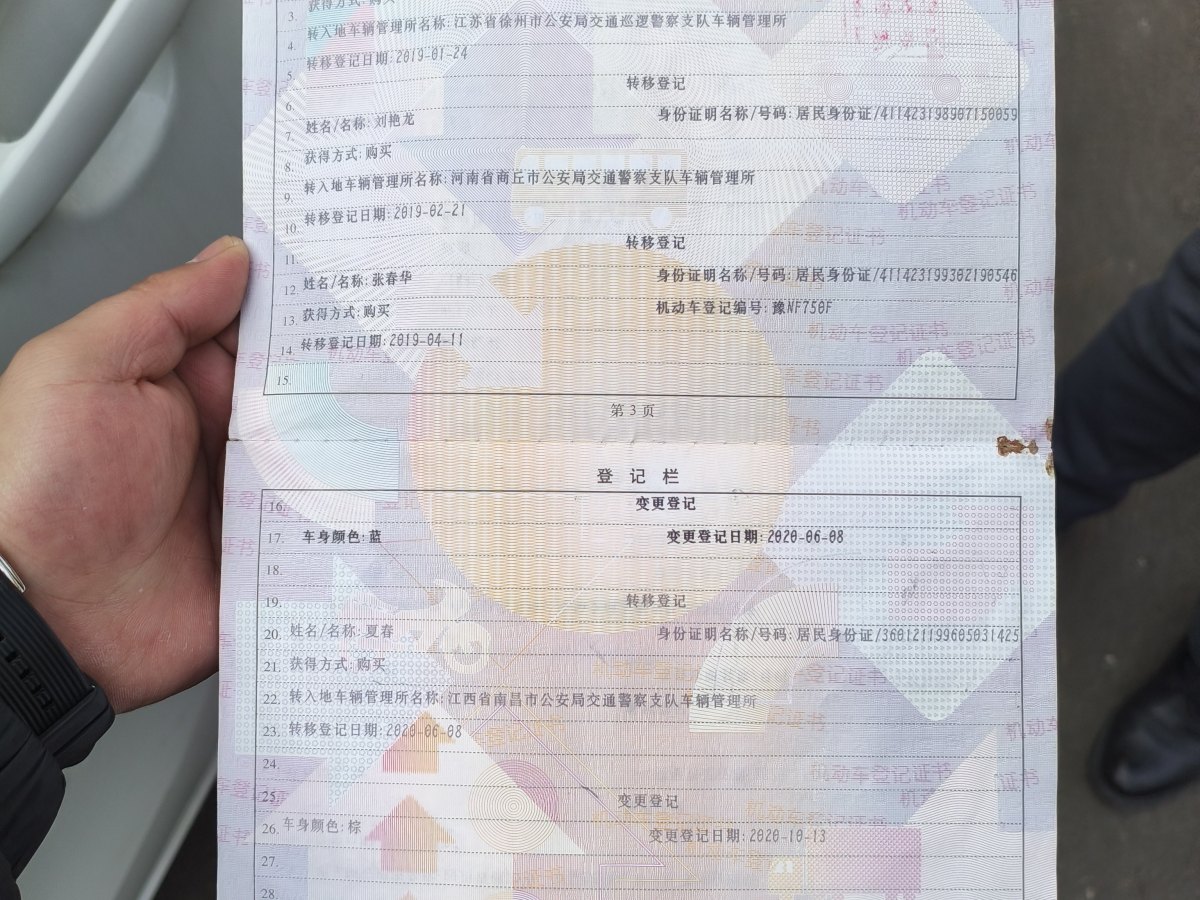 3. 获得方式:购买
4. 转入地车辆管理所名称:江苏省徐州市公安局交通巡逻警察支队车辆管理所
5. 转移登记日期:2019-01-24
6. 转移登记
7. 姓名/名称:刘艳龙 身份证明名称/号码:居民身份证/411423198907150059
8. 获得方式:购买
9. 转入地车辆管理所名称:河南省商丘市公安局交通警察支队车辆管理所
10. 转移登记日期:2019-02-21
11. 转移登记
12. 姓名/名称:张春华 身份证明名称/号码:居民身份证/411423199302190546
13. 获得方式:购买 机动车登记编号:豫NF750F
14. 转移登记日期:2019-04-11
15.
第 3 页
登 记 栏
16. 变更登记
17. 车身颜色:蓝 变更登记日期:2020-06-08
18.
19. 转移登记
20. 姓名/名称:夏春 身份证明名称/号码:居民身份证/360121199605031425
21. 获得方式:购买
22. 转入地车辆管理所名称:江西省南昌市公安局交通警察支队车辆管理所
23. 转移登记日期:2020-06-08
24.
25. 变更登记
26. 车身颜色:棕 变更登记日期:2020-10-13
27.
28.